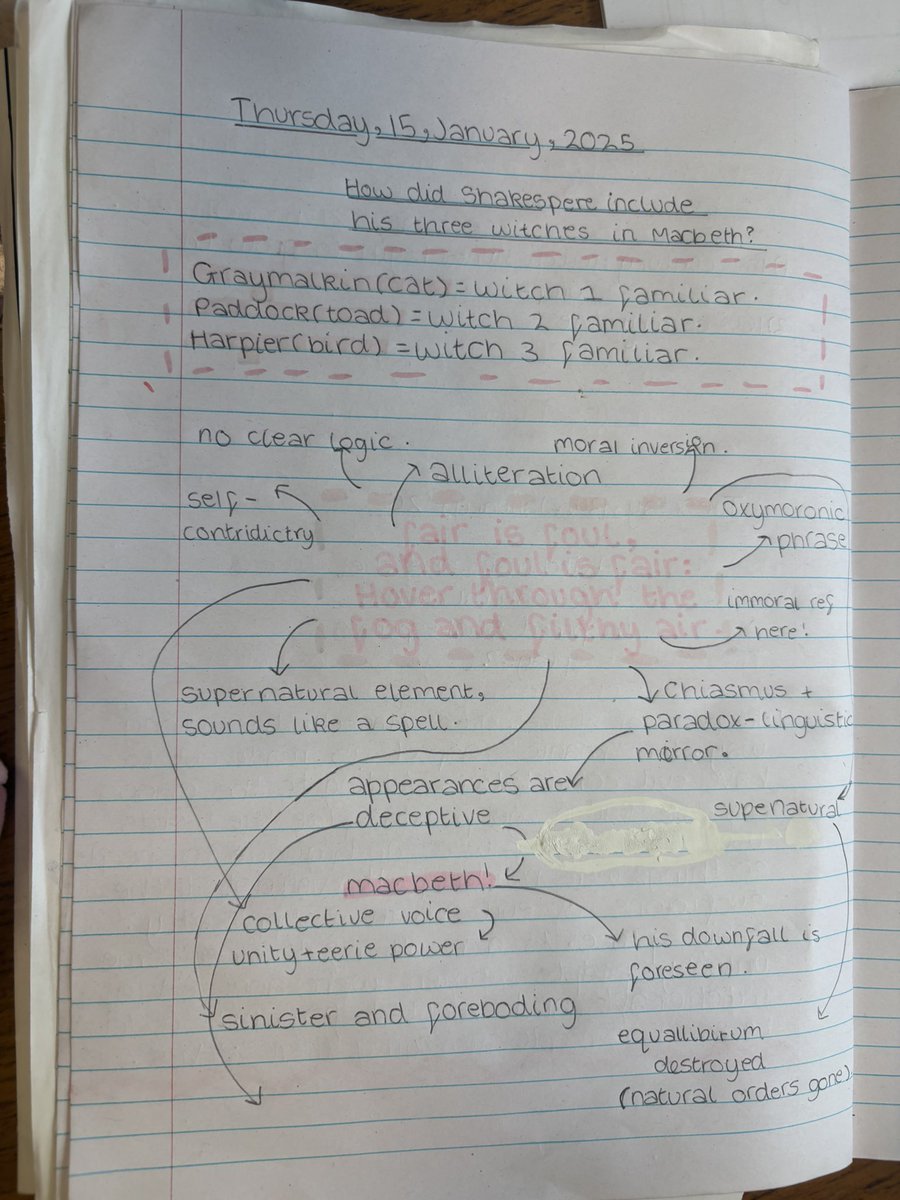 Thursday, 15, January, 2025
How did Shakespere include
his three witches in Macbeth?
Graymalkin(cat) = witch 1 familiar.
Paddock(toad) = witch 2 familiar.
Harpier(bird) = witch 3 familiar.
no clear logic.
moral inversion.
alliteration
self-
contridictry
oxymoronic
phrase
fair is foul,
and foul is fair:
Hover through the
fog and filthy air.
immoral ref
here!
supernatural element,
sounds like a spell.
Chiasmus +
paradox-linguistic
mirror.
appearances are
deceptive
supenatural
macbeth!
collective voice
unity+eerie power
his downfall is
foreseen.
sinister and foreboding
equallibirum
destroyed
(natural orders gone)